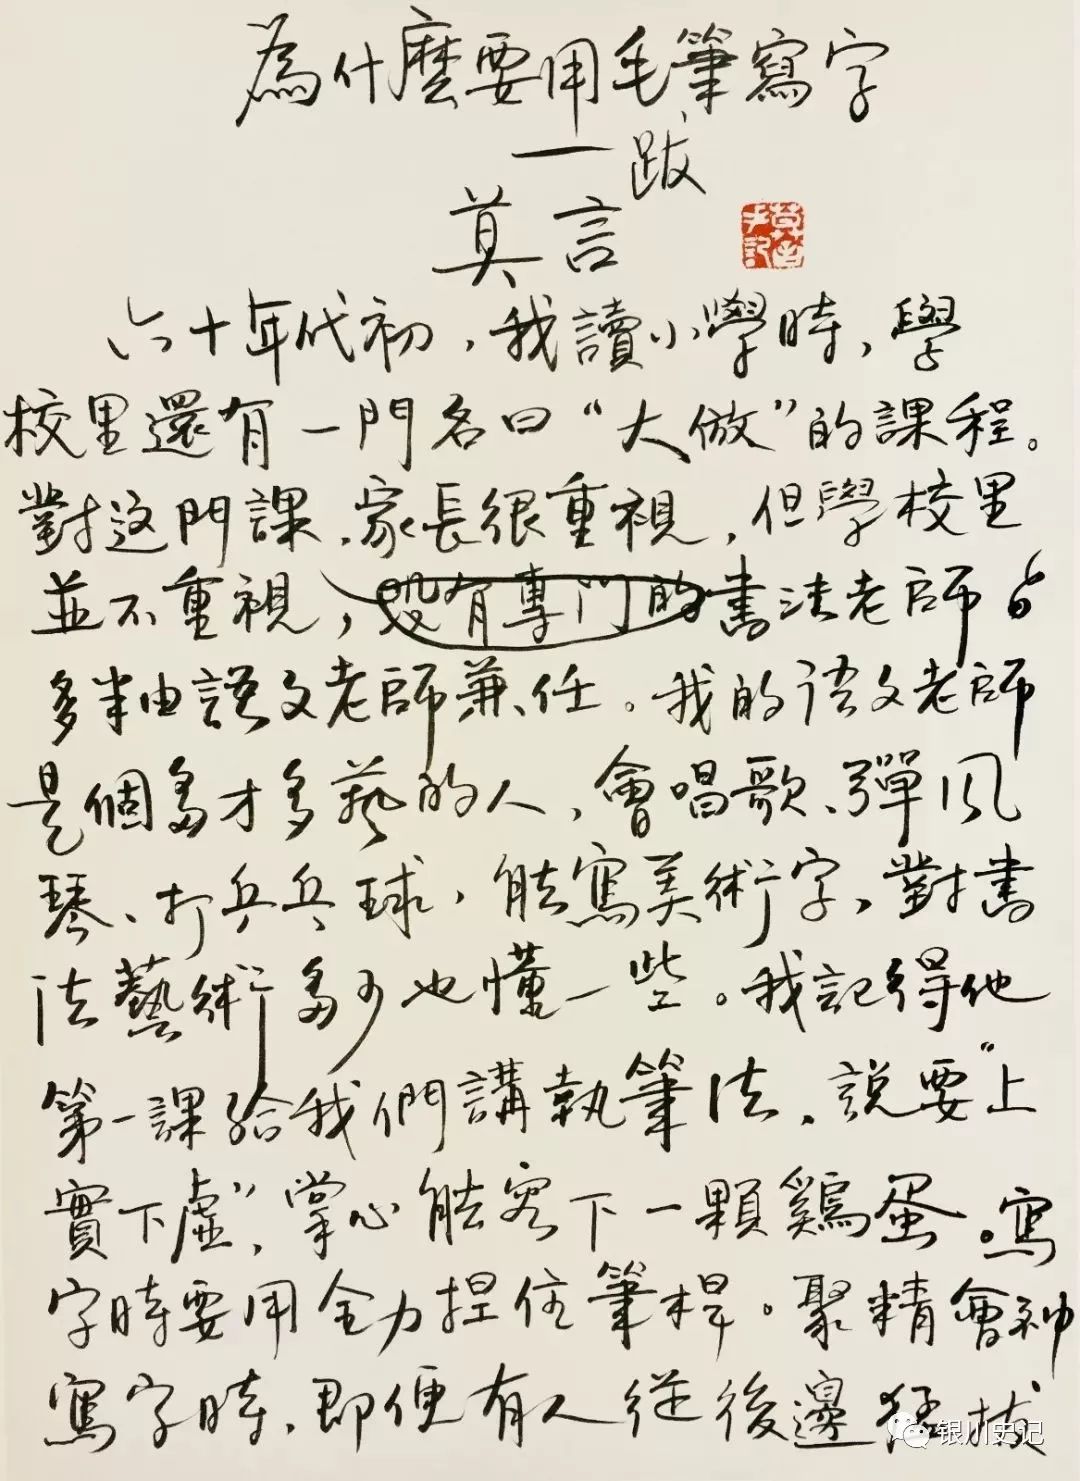 為什麼要用毛筆寫字
——跋
莫言
六十年代初，我讀小學時，學
校里還有一門名曰“大仿”的課程。
對这門課，家長很重視，但學校里
並不重視，沒有專門的書法老師
多半由語文老師兼任。我的语文老師
是個多才多藝的人，會唱歌、彈风
琴、打乒乓球，能寫美術字，對書
法藝術多少也懂一些。我記得他
第一課給我們講執筆法，説要“上
實下虛”，掌心能容下一顆鷄蛋。寫
字時要用全力捏住筆桿。聚精會神
寫字時，即便有人從後邊猛拔
银川史记